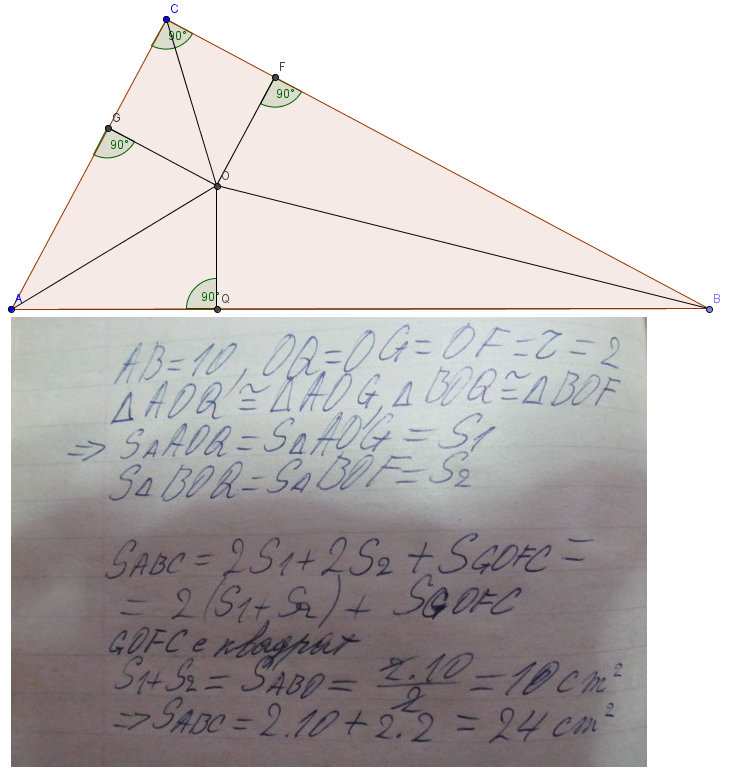 C
90°
F
90°
G
90°
O
A
90°
Q
B
AB=10, OQ=OG=OF=r=2
△AOQ≅△AOG, △BOQ≅△BOF
⇒ S△AOQ=S△AOG=S1
S△BOQ=S△BOF=S2
SABC=2S1+2S2+SGOFC=
=2(S1+S2)+SGOFC
GOFC е квадрат
S1+S2=SABO=2.10/2=10cm²
⇒SABC=2.10+2.2=24cm²